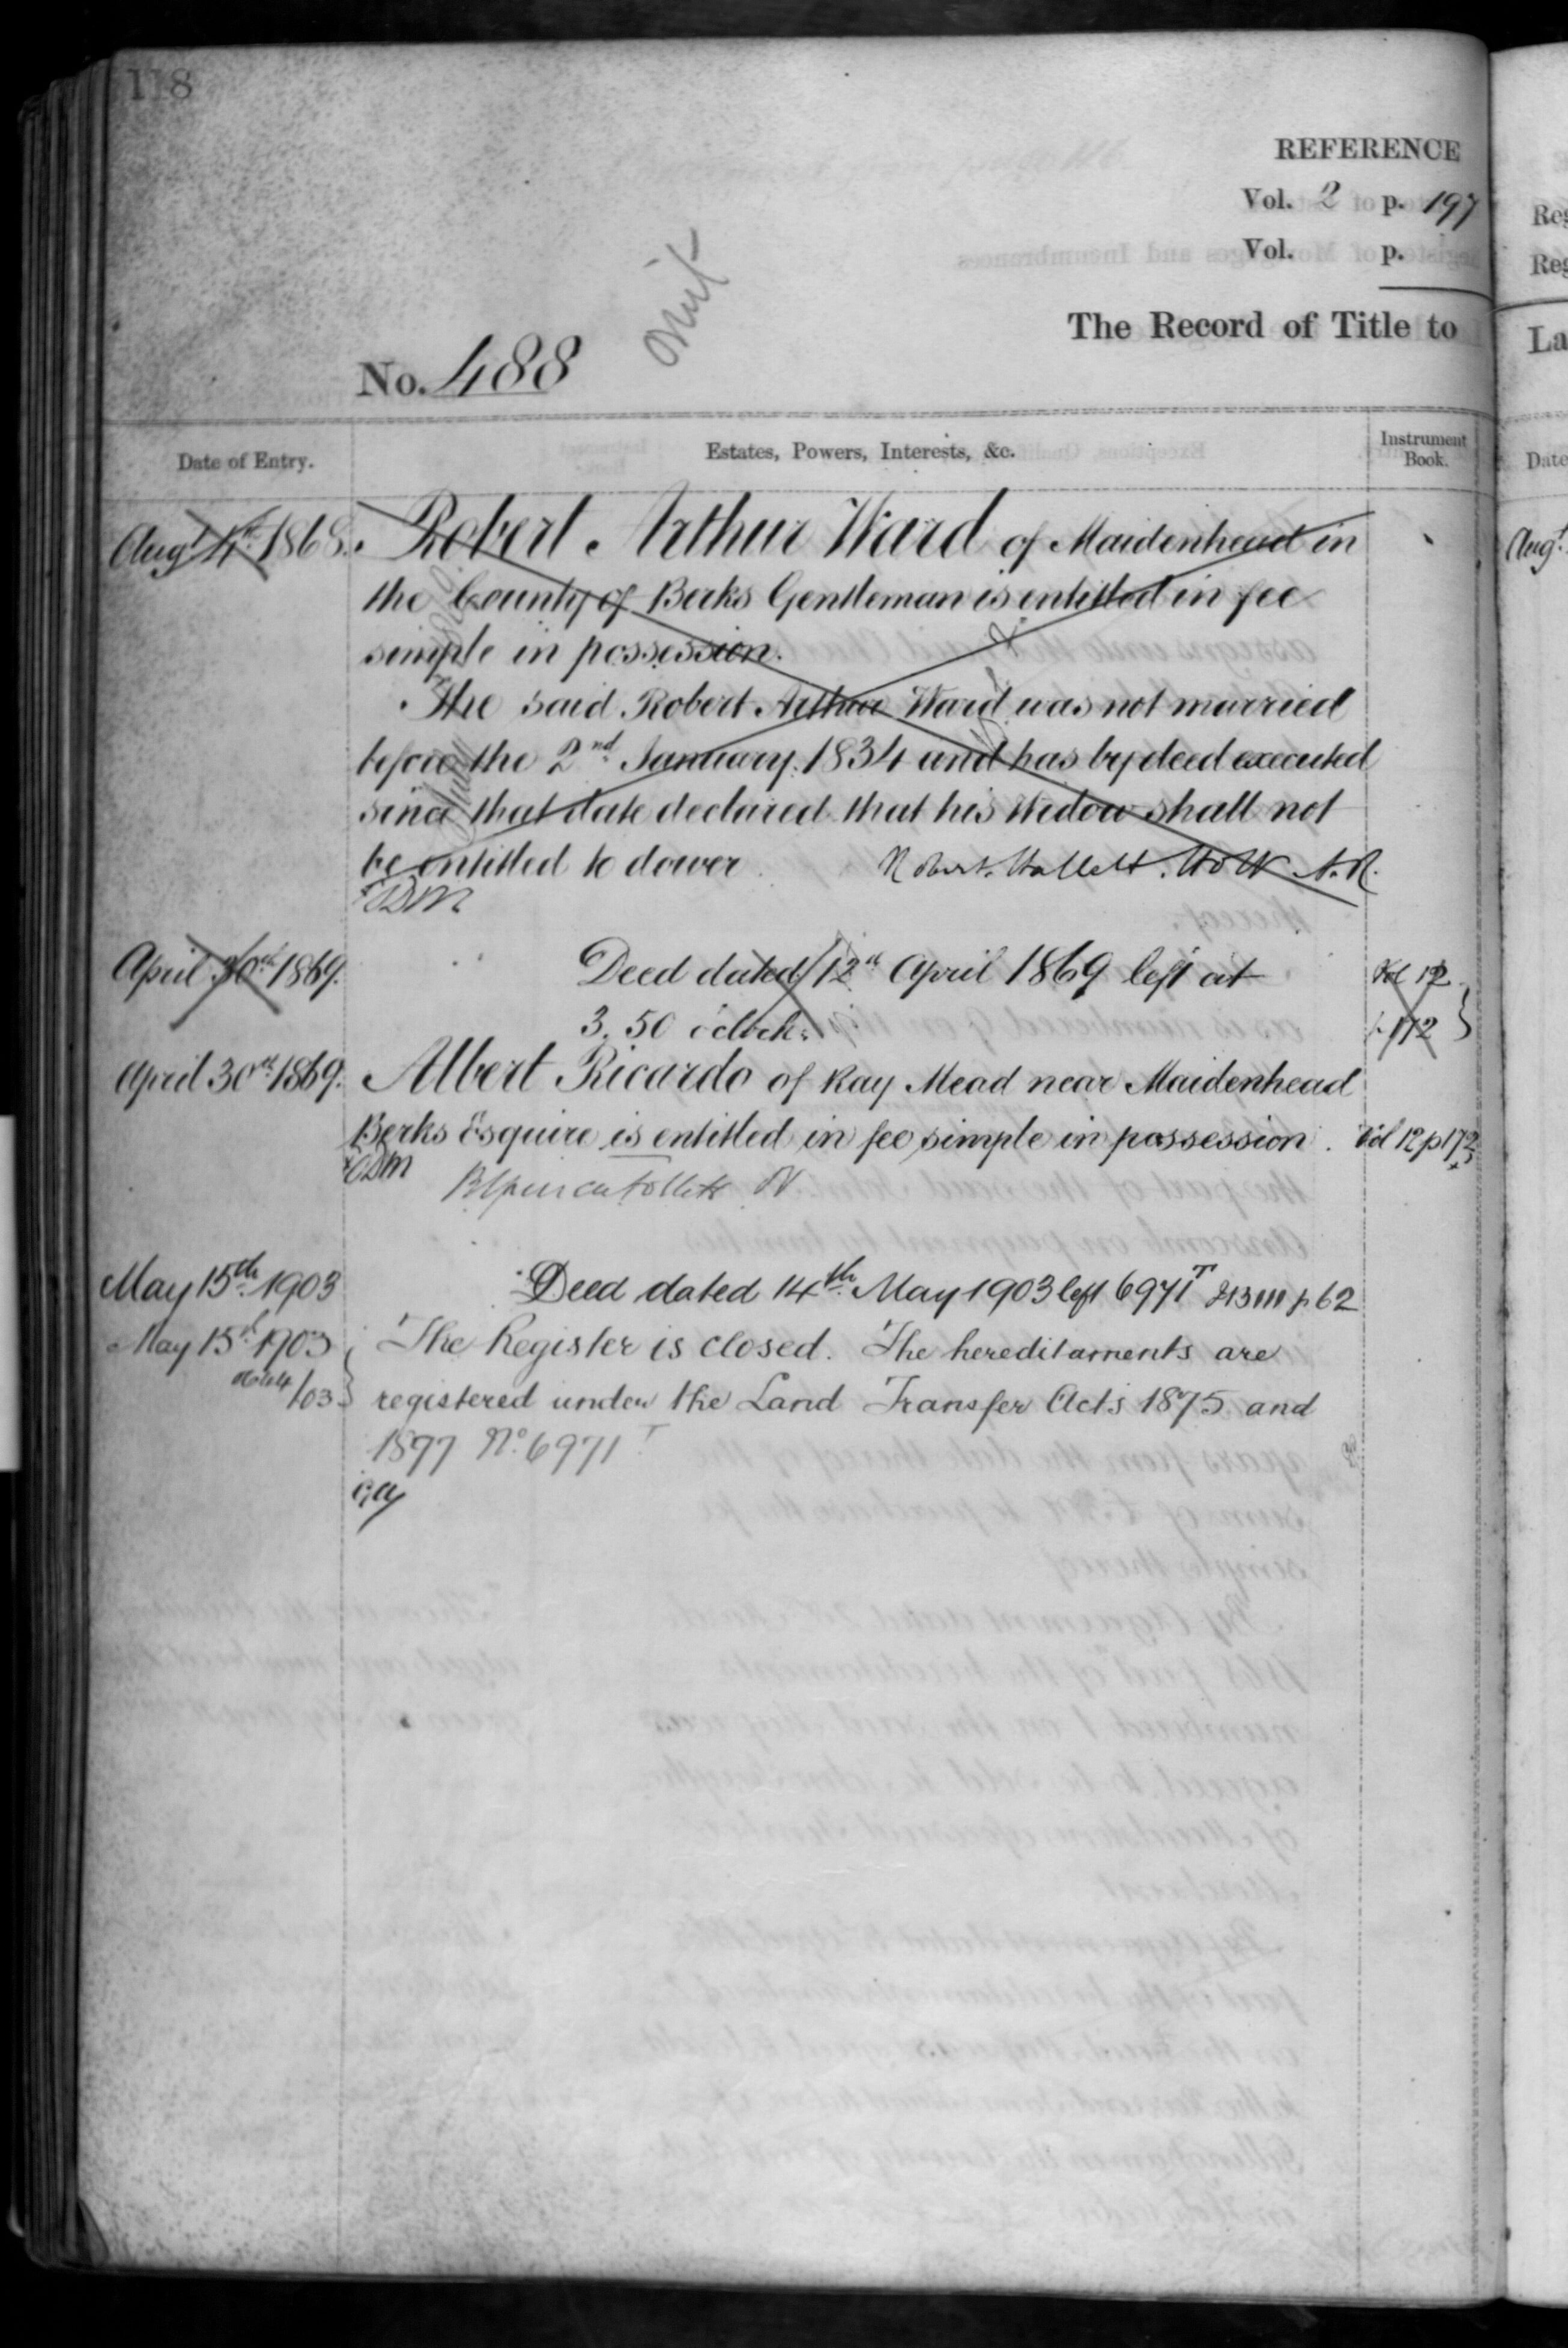 118
REFERENCE
Vol. 2 p. 197
Vol. p.
The Record of Title to
No. 488
Omit
Date of Entry.
Estates, Powers, Interests, &c.
Instrument Book.
Augt 4th 1868. Robert Arthur Ward of Maidenhead in
the County of Berks Gentleman is entitled in fee
simple in possession.
The said Robert Arthur Ward was not married
before the 2nd January 1834 and has by deed executed
since that date declared that his Widow shall not
be entitled to dower Robert Hallett Holt A.R.
April 30th 1869. Deed dated 12th April 1869 left at Vol 12
3.50 o'clock. p 172
April 30th 1869. Albert Ricardo of Ray Mead near Maidenhead
Berks Esquire is entitled in fee simple in possession. Vol 12 p 172
May 15th 1903 Deed dated 14th May 1903 left 6971T p 62
May 15th 1903 The Register is closed. The hereditaments are
/03 registered under the Land Transfer Acts 1875 and
1897 No. 6971T
Reg
Reg
La
Date
Augt